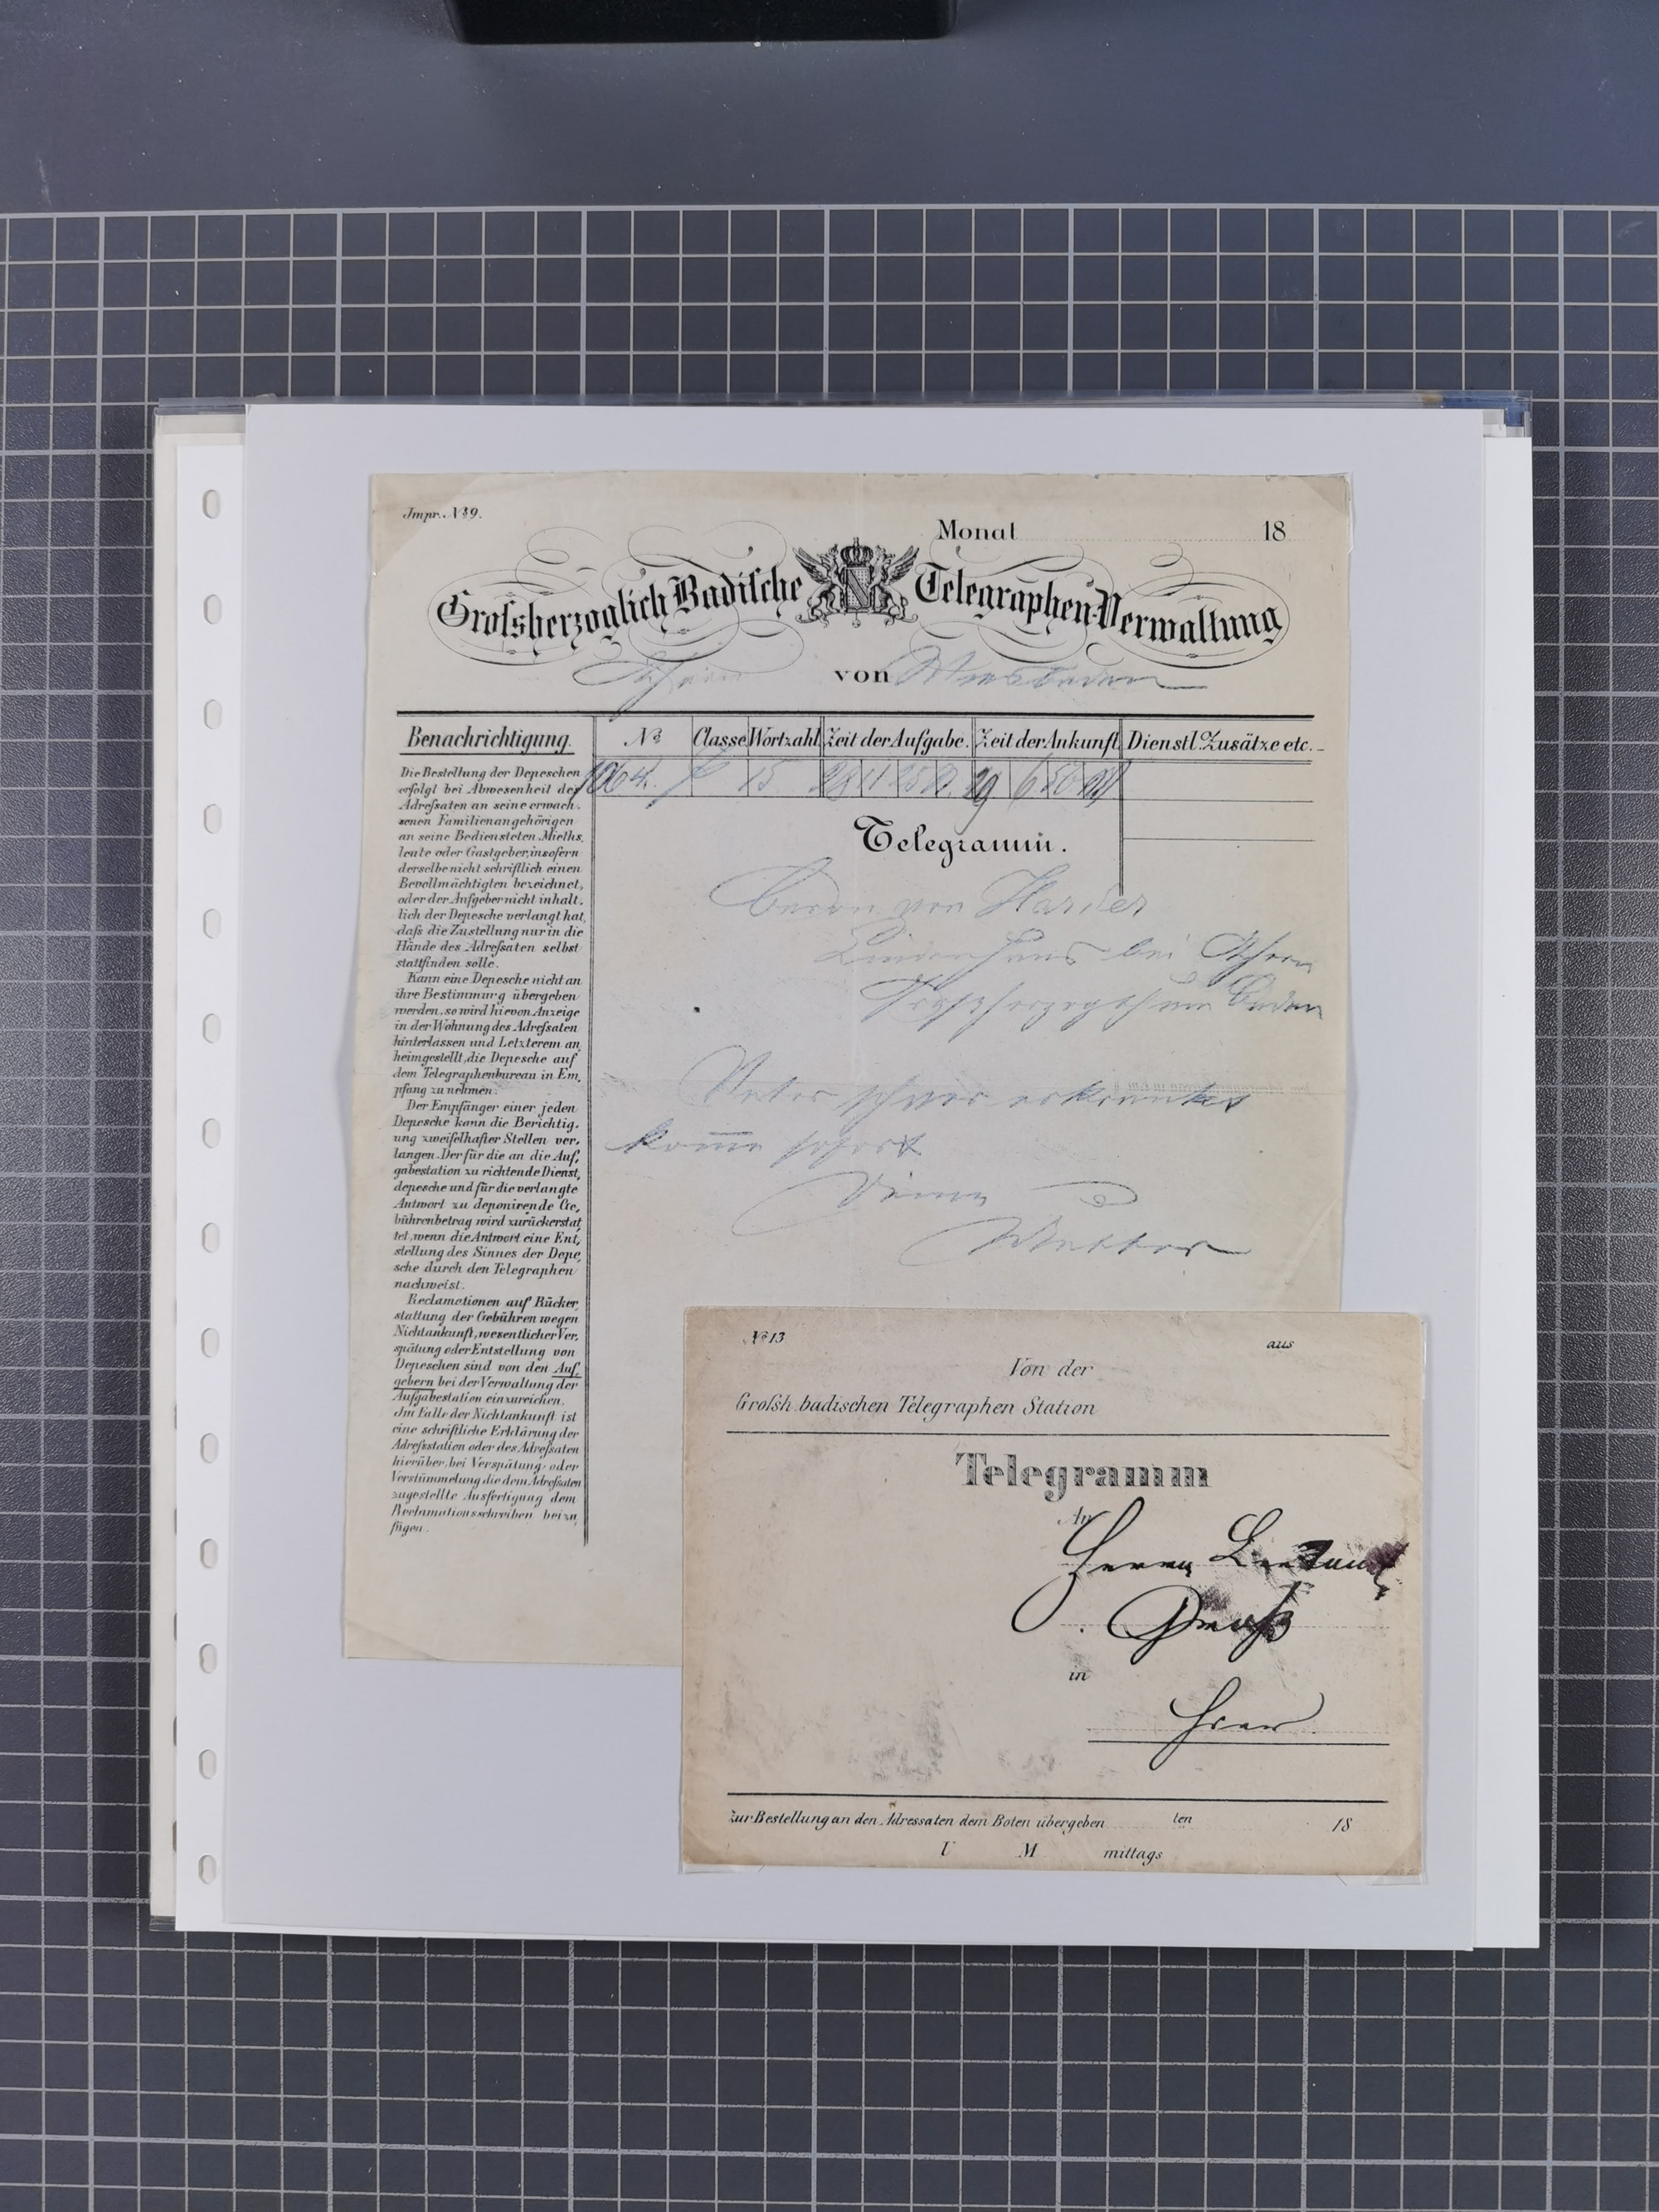 Impr. No 9.
Monat 18
Grofsherzoglich Badifche Telegraphen-Verwaltung
Achern von Wiesbaden
Benachrichtigung.
No Classe Wortzahl Zeit der Aufgabe. Zeit der Ankunft Dienstl. Zusätze etc.
1064. 15 28 11 25 29 6 50
Die Bestellung der Depeschen
erfolgt bei Abwesenheit des
Adrefsaten an seine erwach-
senen Familienangehörigen
an seine Bediensteten Mieths-
leute oder Gastgeber, insofern
derselbe nicht schriftlich einen
Bevollmächtigten bezeichnet,
oder der Aufgeber nicht inhalt-
lich der Depesche verlangt hat,
dafs die Zustellung nur in die
Hände des Adrefsaten selbst
stattfinden solle.
Kann eine Depesche nicht an
ihre Bestimmung übergeben
werden, so wird hievon Anzeige
in der Wohnung des Adrefsaten
hinterlassen und Letzterem an-
heimgestellt, die Depesche auf
dem Telegraphenbureau in Em-
pfang zu nehmen.
Der Empfänger einer jeden
Depesche kann die Berichtig-
ung zweifelhafter Stellen ver-
langen. Der für die an die Auf-
gabestation zu richtende Dienst-
depesche und für die verlangte
Antwort zu deponirende Ge-
bührenbetrag wird zurückerstat-
tet, wenn die Antwort eine Ent-
stellung des Sinnes der Depe-
sche durch den Telegraphen
nachweist.
Reclamationen auf Rücker-
stattung der Gebühren wegen
Nichtankunft, wesentlicher Ver-
spätung oder Entstellung von
Depeschen sind von den Auf-
gebern bei der Verwaltung der
Aufgabestation einzureichen.
Im Falle der Nichtankunft ist
eine schriftliche Erklärung der
Adrefsstation oder des Adrefsaten
hierüber, bei Verspätung oder
Verstümmelung die dem Adrefsaten
zugestellte Ausfertigung dem
Reclamationsschreiben beizu-
fügen.
Telegramm.
Baron von Harder
Lindenhaus bei Achern
Großherzogthum Baden
Vater schwer erkrankt
komme sofort
Deine
Mutter
No 13 aus
Von der
Grofsh. badischen Telegraphen Station
Telegramm
An
Herrn
in
Hier
Zur Bestellung an den Adressaten dem Boten übergeben ten 18
U M mittags